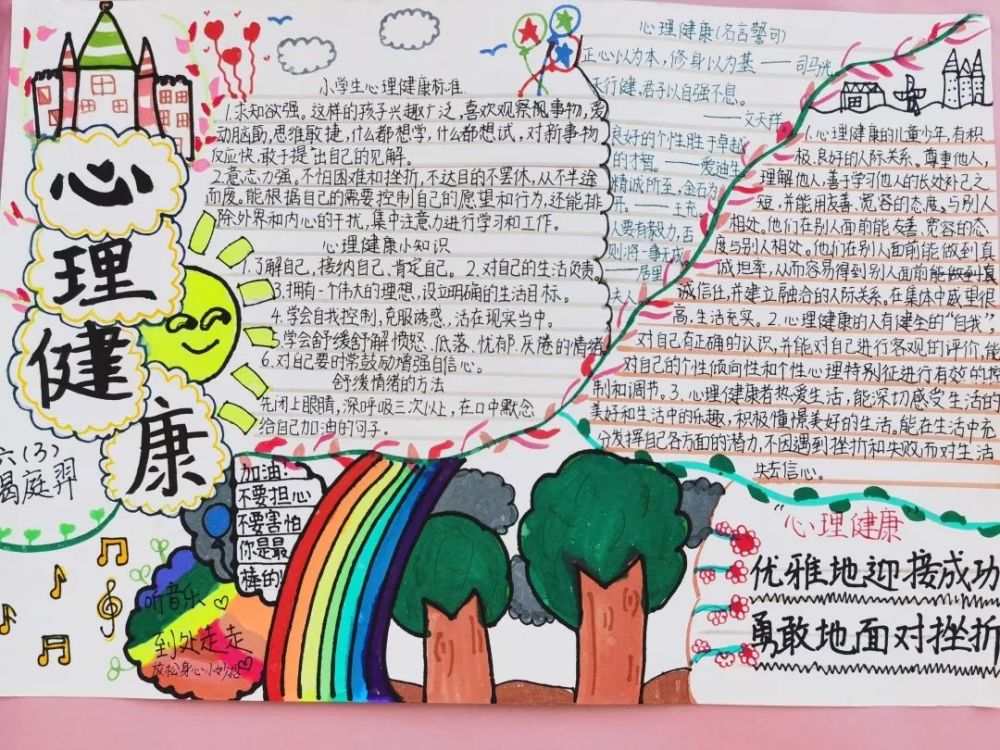 心
理
健
康
六(3)
庭羿
小学生心理健康标准
1.求知欲强。这样的孩子兴趣广泛,喜欢观察视事物,爱
动脑筋,思维敢捷,什么都想学,什么都想试,对新事物
反应快,敢于提出自己的见解。
2.意志力强。不怕困难和挫折,不达目的不罢休,从不半途
而废。能根据自己的需要控制自己的愿望和行为,还能排
除外界和内心的干扰,集中注意力进行学习和工作。
心理健康小知识
1.了解自己,接纳自己、肯定自己。2.对自己的生活负责
3.拥有一个伟大的理想,设立明确的生活目标。
4.学会自我控制,克服诱惑,活在现实当中。
5.学会舒缓舒解愤怒、低落、忧郁.厌倦的情绪
6.对自己要时常鼓励增强自信心。
舒缓情绪的方法
先闭上眼睛,深呼吸三次以上,在口中默念
给自己加油的句子。
心理健康(名言警句)
正心以为本,修身以为基——司马光
天行健,君子以自强不息。
——文天祥
良好的个性胜于卓越
的才智。——爱迪生
精诚所至,金石为
开。——王充
人要有毅力,否
则将一事无成
——居里
夫人
1.心理健康的儿童少年,有积
极、良好的人际关系。尊重他人,
理解他人,善于学习他人的长处补己之
短,并能用友善、宽容的态度与别人
相处。他们在别人面前能友善、宽容的态
度与别人相处。他们在别人面前能做到真
诚坦率,从而容易得到别人面前能做到真
诚信任,并建立融洽的人际关系,在集体中威里很
高,生活充实。2.心理健康的人有健全的“自我”,
对自己有正确的认识,并能对自己进行客观的评价,能
对自己的个性倾向性和个性心理特别征进行有效的控
制和调节。3.心理健康者热爱生活,能深切感受生活的
美好和生活中的乐趣,积极憧憬美好的生活。能在生活中充
分发挥自己各方面的潜力,不因遇到挫折和失败而对生活
失去信心。
加油!
不要担心
不要害怕
你是最
棒的!
听音乐
到处走走
放松身心小妙招
“心理健康
优雅地迎接成功
勇敢地面对挫折